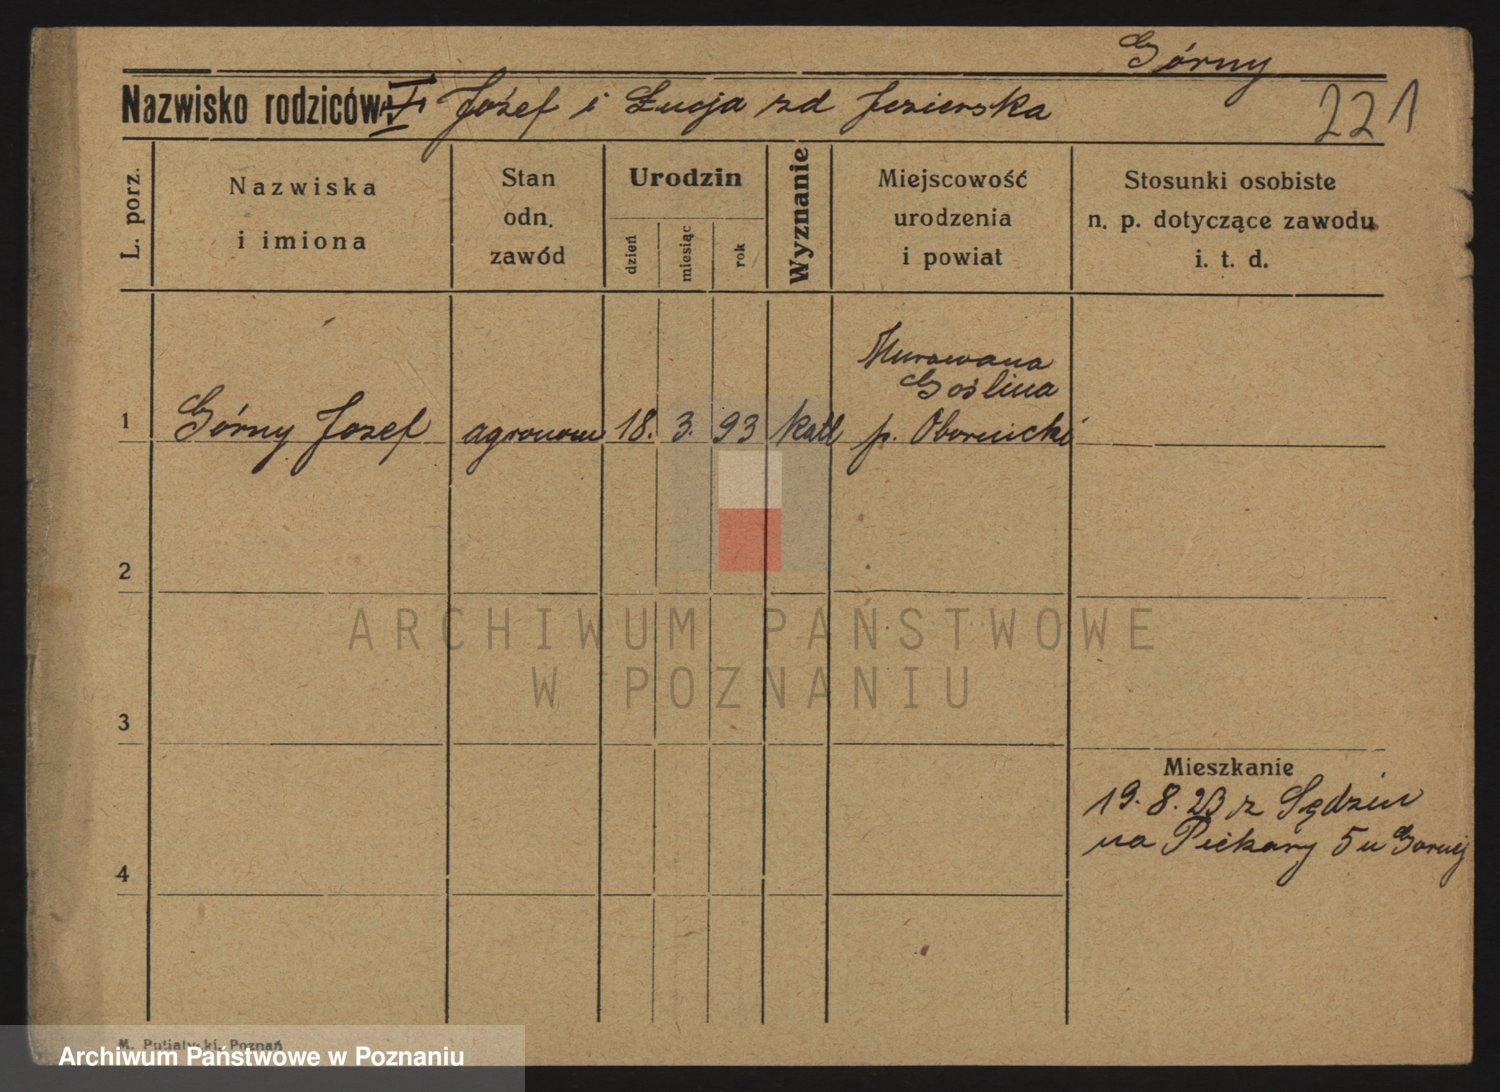 Górny
Nazwisko rodziców: I Józef i Łucja zd Jezierska
221
L. porz.
Nazwiska
i imiona
Stan
odn.
zawód
Urodzin
dzień
miesiąc
rok
Wyznanie
Miejscowość
urodzenia
i powiat
Stosunki osobiste
n. p. dotyczące zawodu
i. t. d.
Murowana
Goślina
1 Górny Józef agronom 18. 3. 93 katl p. Obornicki
2
ARCHIWUM PAŃSTWOWE
W POZNANIU
3
Mieszkanie
19. 8. 23 z Sędzin
na Piekary 5 u Gorny
4
M. Putiatycki, Poznań
Archiwum Państwowe w Poznaniu